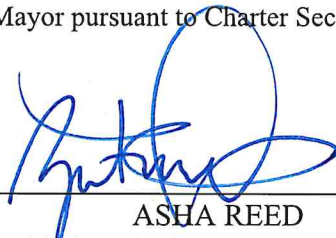 Mayor pursuant to Charter Sec
ASHA REED